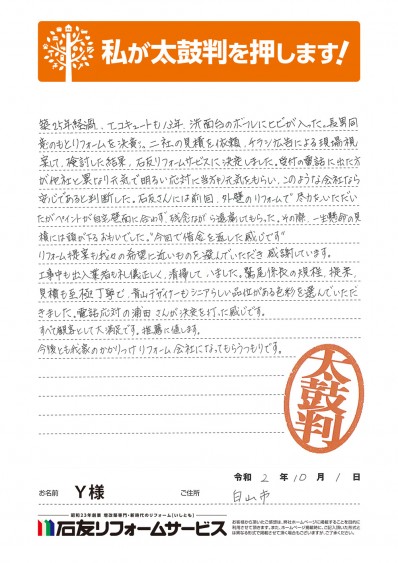 私が太鼓判を押します!
築25年経過、エコキュートも13年、洗面台のボールにヒビが入った。長男同
意のもとリフォームを決意。二社の見積を依頼、チラシ広告による現場視
察して、検討した結果、石友リフォームサービスに決定しました。受付の電話に出た方
が他社と異なり元気で明るい応対に当方が元気をもらい、このような会社なら
安心であると判断した。石友さんには前回、外壁のリフォームで尽力をいただい
たがペイントが自宅壁面に合わず、残念ながら遠慮してもらった。その際、一生懸命の見
積には頭が下るおもいでした。"今回で借金を返した感じです"
リフォーム提案も我々の希望に近いものを選んでいただき感謝しています。
工事中も出入業者も礼儀正しく、清掃していました。鷲尾係長の規程、提案、
見積も至極丁寧で、青山デザイナーもシニアらしい品位がある色彩を選んでいただ
きました。電話応対の浦田さんが決定を打った感じです。
すべて顧客として大満足です。推薦に値します。
今後とも我家のかかりつけリフォーム会社になってもらうつもりです。
太鼓判
令和 2 年 10 月 1 日
お名前 Y様 ご住所 白山市
昭和23年創業 増改築専門・新時代のリフォーム[いしとも]
石友リフォームサービス
お客様から頂いたご感想は、弊社ホームページに掲載することを目的に
利用させて頂きます。また、ホームページに掲載する際、ご記入頂いた形式と
は異なる形式で掲載させて頂く場合もございますが、ご了承ください。